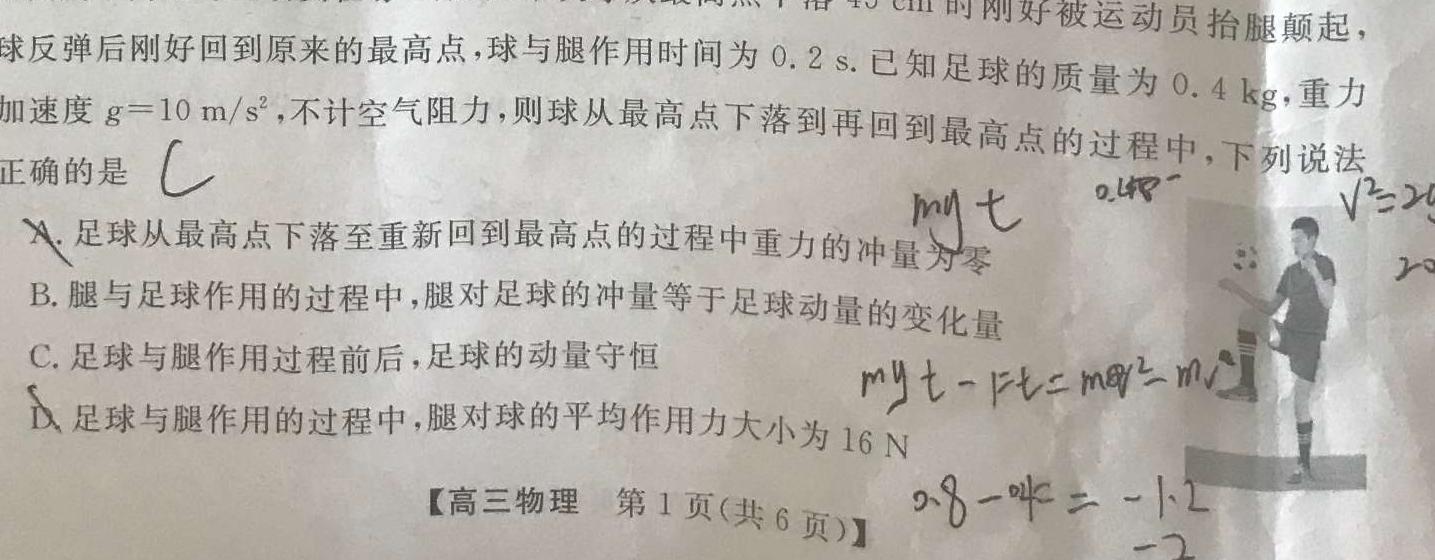 45 cm 时刚好被运动员抬腿颠起，
球反弹后刚好回到原来的最高点，球与腿作用时间为 0.2 s. 已知足球的质量为 0.4 kg，重力
加速度 g=10 m/s²，不计空气阻力，则球从最高点下落到再回到最高点的过程中，下列说法
正确的是 C
mgt
A. 足球从最高点下落至重新回到最高点的过程中重力的冲量为零
B. 腿与足球作用的过程中，腿对足球的冲量等于足球动量的变化量
C. 足球与腿作用过程前后，足球的动量守恒
D. 足球与腿作用的过程中，腿对球的平均作用力大小为 16 N
【高三物理　第 1 页(共 6 页)】
-1.2
-2